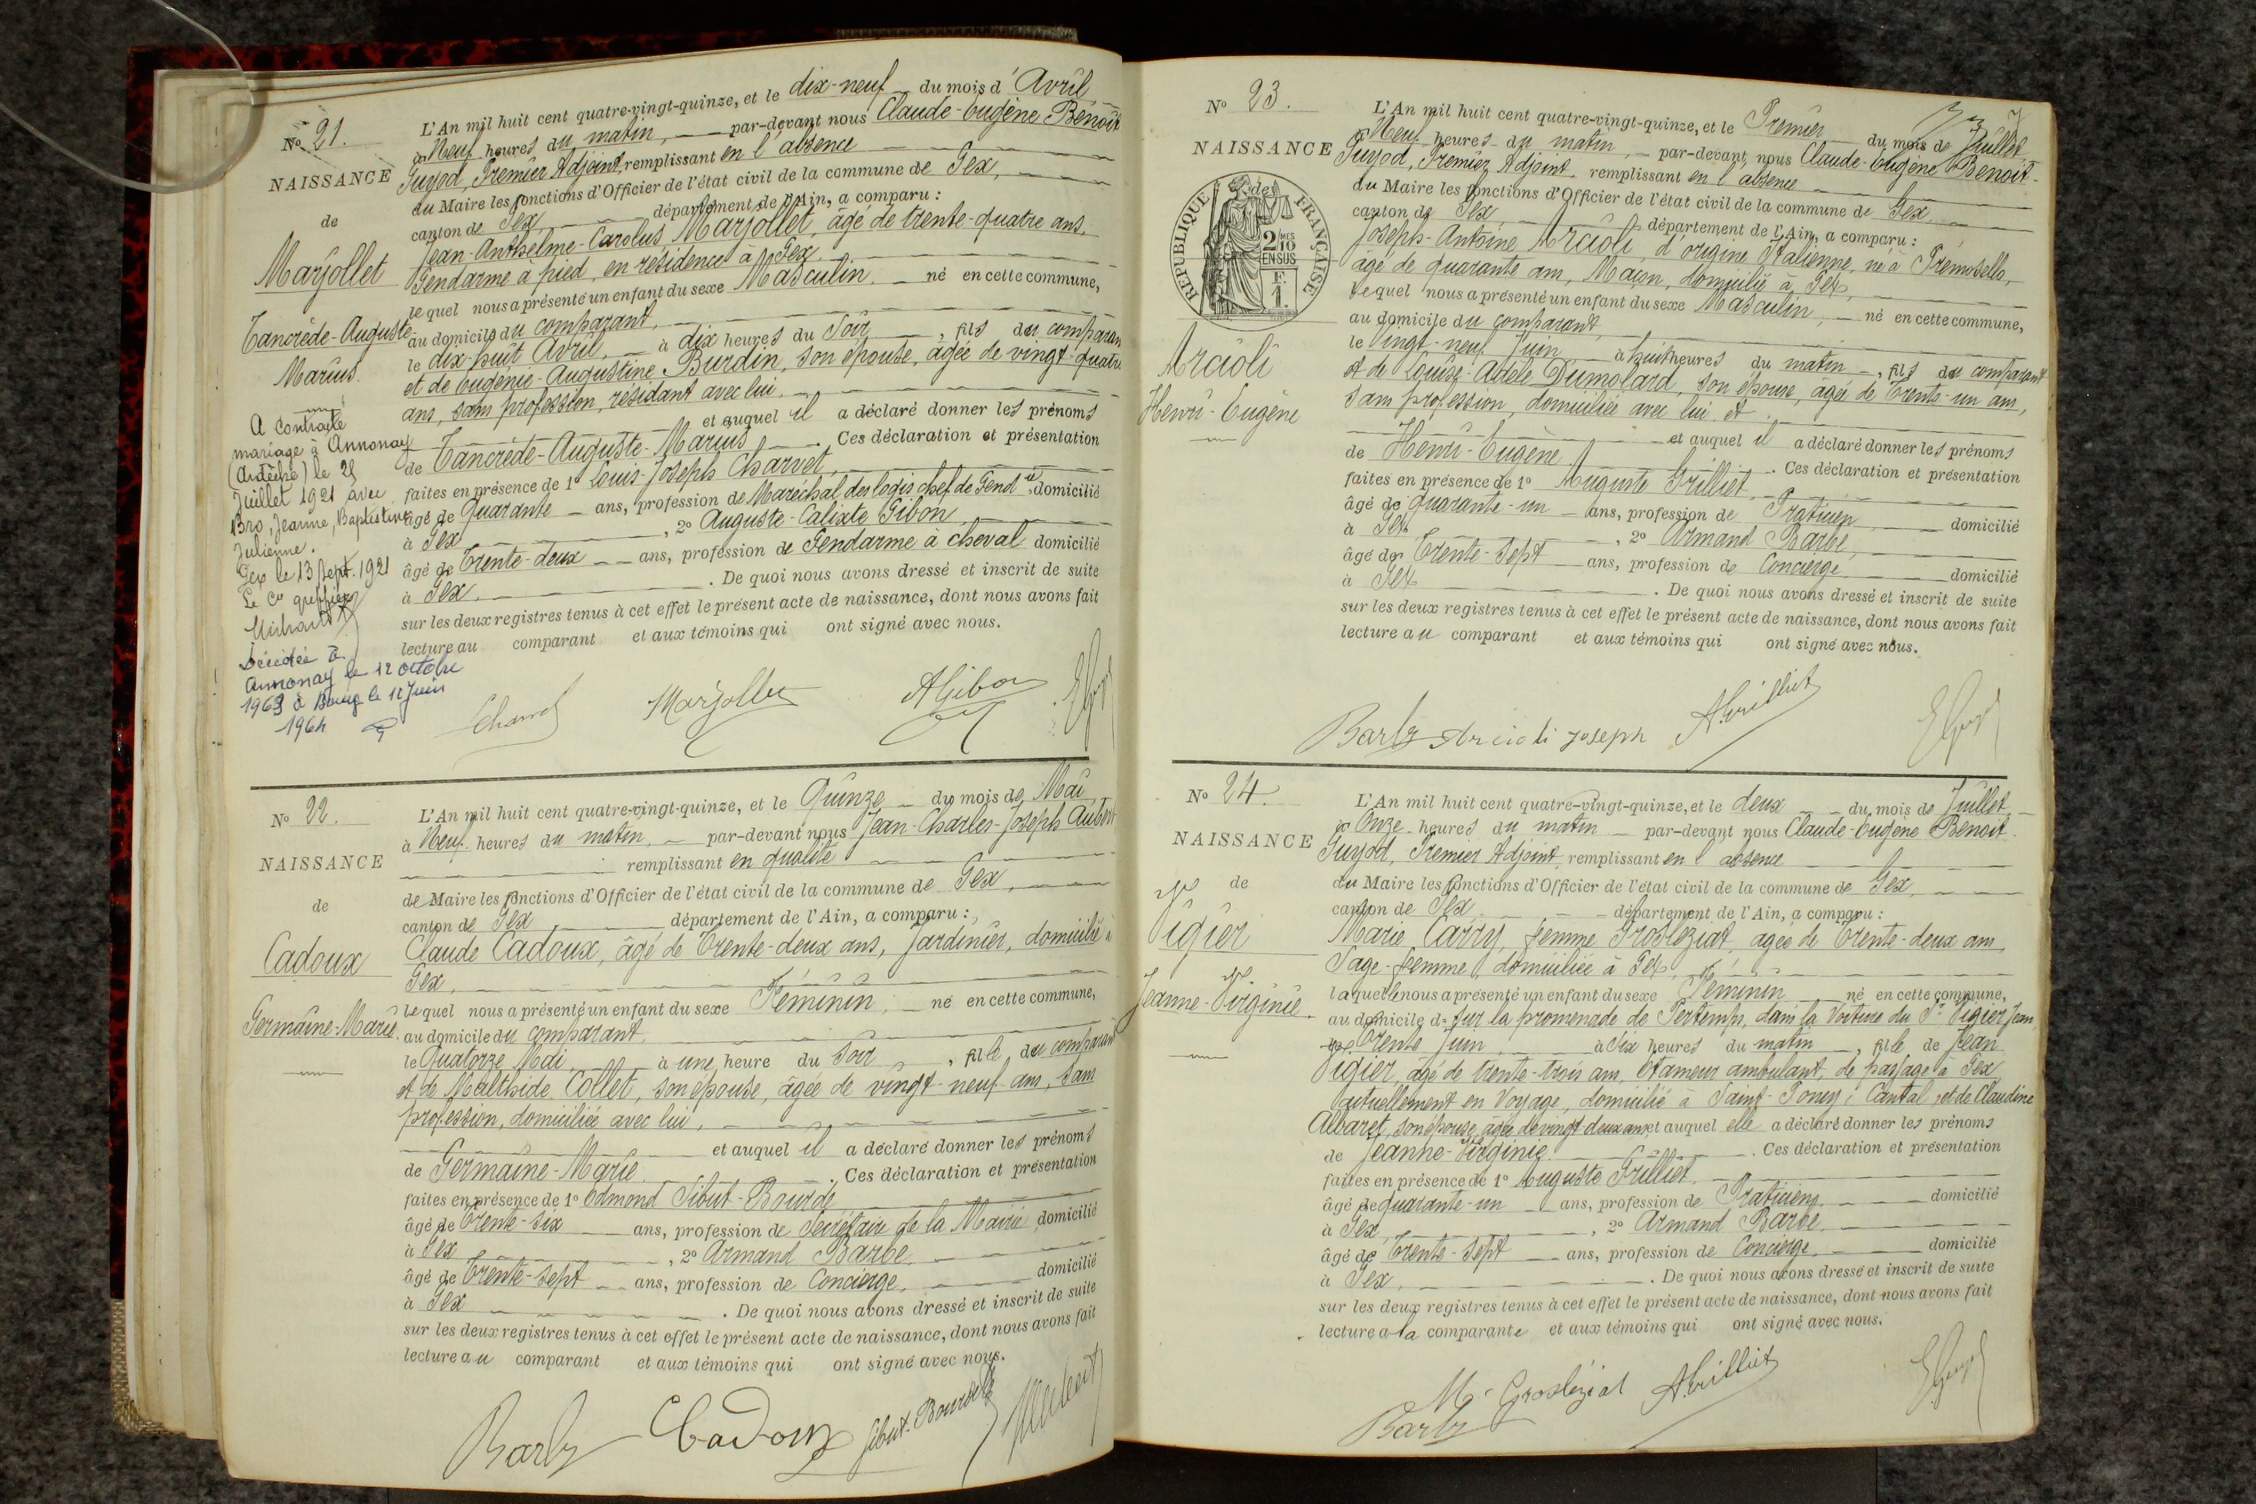 N° 21.
NAISSANCE
de
Marjollet
Tancrède-Auguste-
Marius.
A contracté
mariage à Annonay
(Ardèche) le 25
Juillet 1921 avec
Bro, Jeanne, Baptistine
Julienne.
Gex le 13 Sept. 1921
Le Cs greffier
Décédée à
Annonay le 12 octobre
1963 à Bourg le 12 Juin
1964
L'An mil huit cent quatre-vingt-quinze, et le dix-neuf du mois d'Avril
à Neuf heures du matin, par-devant nous Claude-Eugène Benoît
Guyod, Premier Adjoint, remplissant en l'absence
du Maire les fonctions d'Officier de l'état civil de la commune de Gex,
canton de Gex, département de l'Ain, a comparu :
Jean-Anthelme-Carolus Marjollet, âgé de trente-quatre ans,
Gendarme à pied, en résidence à Gex.
lequel nous a présenté un enfant du sexe Masculin, né en cette commune,
au domicile du comparant,
le dix-huit Avril, à dix heures du Soir, fils du comparant
et de Eugénie-Augustine Burdin, son épouse, âgée de vingt-quatre
ans, sans profession, résidant avec lui.
et auquel il a déclaré donner les prénoms
de Tancrède-Auguste-Marius. Ces déclaration et présentation
faites en présence de 1° Louis-Joseph Charvet,
âgé de Quarante ans, profession de Maréchal des logis chef de Gend ie, domicilié
à Gex, 2° Auguste-Calixte Gibon
âgé de Trente-deux ans, profession de Gendarme à cheval domicilié
à Gex. De quoi nous avons dressé et inscrit de suite
sur les deux registres tenus à cet effet le présent acte de naissance, dont nous avons fait
lecture au comparant et aux témoins qui ont signé avec nous.
Charvet Marjollet AGibon EGuyod
N° 22.
NAISSANCE
de
Cadoux
Germaine-Marie.
L'An mil huit cent quatre-vingt-quinze, et le Quinze du mois de Mai
à Neuf heures du matin, par-devant nous Jean-Charles-Joseph Aubert
remplissant en qualité
de Maire les fonctions d'Officier de l'état civil de la commune de Gex,
canton de Gex département de l'Ain, a comparu :
Claude Cadoux, âgé de Trente-deux ans, Jardinier, domicilié à
Gex,
lequel nous a présenté un enfant du sexe Féminin, né en cette commune,
au domicile du comparant
le Quatorze Mai, à une heure du Soir, fille du comparant
et de Malthide Collet, son épouse, âgée de vingt-neuf ans, sans
profession, domiciliée avec lui,
et auquel il a déclaré donner les prénoms
de Germaine-Marie. Ces déclaration et présentation
faites en présence de 1° Edmond Sibut-Bourde
âgé de Trente-six ans, profession de Secrétaire de la Mairie domicilié
à Gex, 2° Armand Barbe.
âgé de Trente-sept ans, profession de Concierge, domicilié
à Gex. De quoi nous avons dressé et inscrit de suite
sur les deux registres tenus à cet effet le présent acte de naissance, dont nous avons fait
lecture au comparant et aux témoins qui ont signé avec nous.
Barbe Cadoux Sibut-Bourde Aubert
7
N° 23.
NAISSANCE
de
RÉPUBLIQUE FRANÇAISE
2 MES
10
EN SUS
F.
1.
Arcioli
Henri-Eugène
L'An mil huit cent quatre-vingt-quinze, et le Premier du mois de Juillet
à Neuf heures du matin, par-devant nous Claude-Eugène Benoit-
Guyod, Premier Adjoint remplissant en l'absence
du Maire les fonctions d'Officier de l'état civil de la commune de Gex
canton de Gex, département de l'Ain, a comparu :
Joseph-Antoine Arcioli, d'origine Italienne, né à Prémosello,
âgé de quarante ans, Maçon, domicilié à Gex,
lequel nous a présenté un enfant du sexe Masculin, né en cette commune,
au domicile du comparant,
le Vingt-neuf Juin à huit heures du matin, fils du comparant
et de Louise-Adèle Dumolard, son épouse, âgée de Trente-un ans,
sans profession, domiciliée avec lui et
et auquel il a déclaré donner les prénoms
de Henri-Eugène. Ces déclaration et présentation
faites en présence de 1° Auguste Grilliet,
âgé de quarante-un ans, profession de Praticien domicilié
à Gex, 2° Armand Barbe,
âgé de Trente-sept ans, profession de Concierge domicilié
à Gex. De quoi nous avons dressé et inscrit de suite
sur les deux registres tenus à cet effet le présent acte de naissance, dont nous avons fait
lecture au comparant et aux témoins qui ont signé avec nous.
Barbe Arcioli Joseph AGrilliet EGuyod
N° 24.
NAISSANCE
de
Vigier
Jeanne-Virginie.
L'An mil huit cent quatre-vingt-quinze, et le deux du mois de Juillet
à Onze heures du matin par-devant nous Claude-Eugène Benoit-
Guyod, Premier Adjoint remplissant en l'absence
du Maire les fonctions d'Officier de l'état civil de la commune de Gex,
canton de Gex, département de l'Ain, a comparu :
Marie Carry, femme Grosléziat, âgée de Trente-deux ans,
Sage-femme, domiciliée à Gex,
laquelle nous a présenté un enfant du sexe Féminin né en cette commune,
au domicile d- sur la promenade de Pertemps, dans la Voiture du Sr Vigier Jean
le Trente Juin à Six heures du matin, fille de Jean
Vigier, âgé de trente-trois ans, étameur ambulant, de passage à Gex
actuellement en Voyage, domicilié à Saint-Poncy, Cantal, et de Claudine
Albaret, son épouse, âgée de vingt-deux ans, et auquel elle a déclaré donner les prénoms
de Jeanne-Virginie. Ces déclaration et présentation
faites en présence de 1° Auguste Grilliet.
âgé de quarante-un ans, profession de Praticien, domicilié
à Gex, 2° Armand Barbe.
âgé de Trente-sept ans, profession de Concierge, domicilié
à Gex. De quoi nous avons dressé et inscrit de suite
sur les deux registres tenus à cet effet le présent acte de naissance, dont nous avons fait
lecture a la comparante et aux témoins qui ont signé avec nous.
M. Grosléziat AGrilliet EGuyod
Barbe